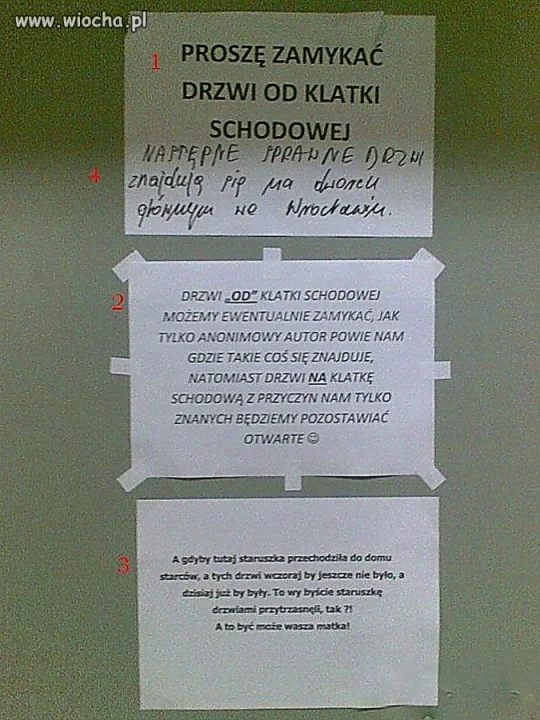 www.wiocha.pl
1
PROSZĘ ZAMYKAĆ
DRZWI OD KLATKI
SCHODOWEJ
4
NASTĘPNE SPRAWNE DRZWI
znajdują się na dworcu
głównym we Wrocławiu.
2
DRZWI „OD” KLATKI SCHODOWEJ
MOŻEMY EWENTUALNIE ZAMYKAĆ, JAK
TYLKO ANONIMOWY AUTOR POWIE NAM
GDZIE TAKIE COŚ SIĘ ZNAJDUJE,
NATOMIAST DRZWI NA KLATKĘ
SCHODOWĄ Z PRZYCZYN NAM TYLKO
ZNANYCH BĘDZIEMY POZOSTAWIAĆ
OTWARTE ☺
3
A gdyby tutaj staruszka przechodziła do domu
starców, a tych drzwi wczoraj by jeszcze nie było, a
dzisiaj już by były. To wy byście staruszkę
drzwiami przytrzasnęli, tak ?!
A to być może wasza matka!